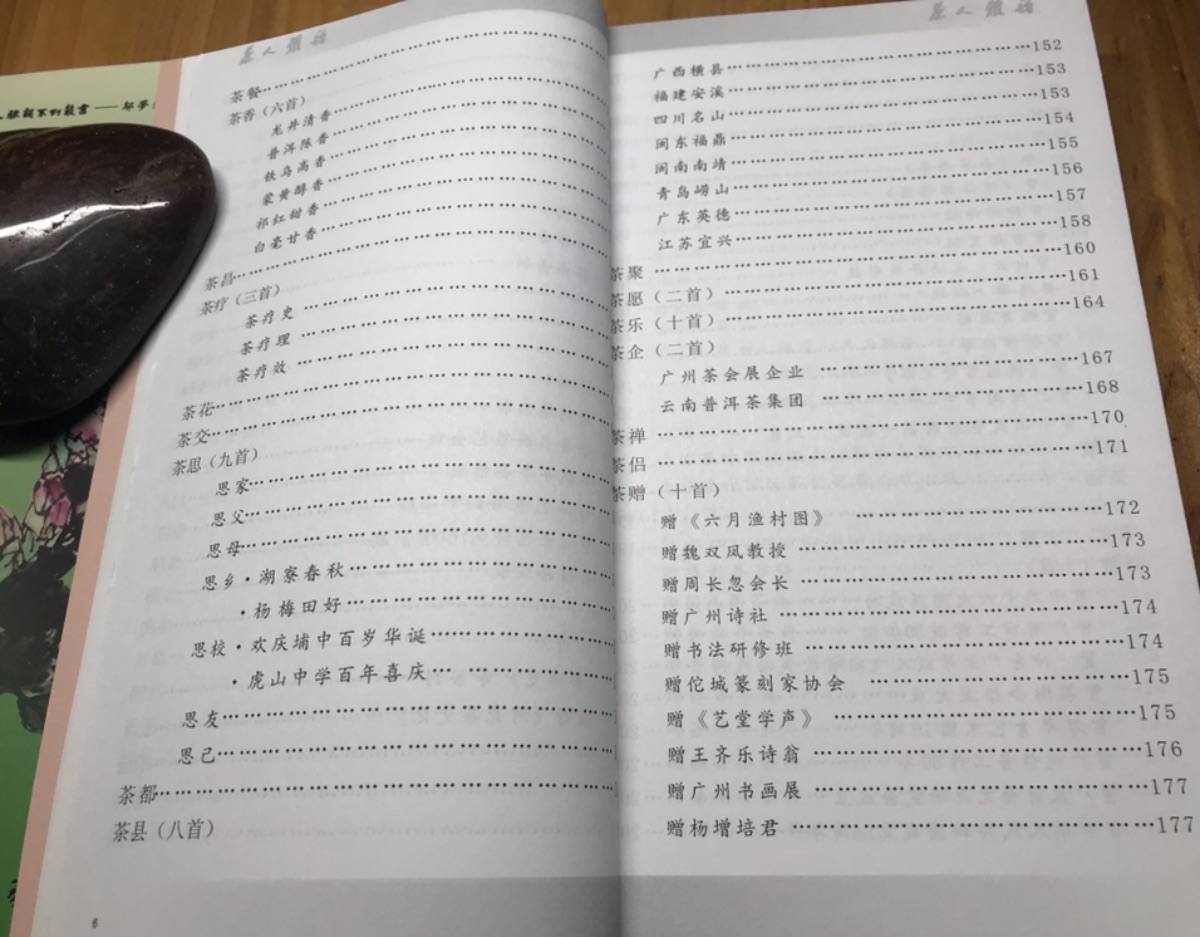 茶人雅语
茶餐………………………………
茶香（六首）
龙井清香………………………………
普洱陈香………………………………
铁乌高香………………………………
蒙黄醇香………………………………
祁红甜香………………………………
白毫甘香………………………………
茶昌………………………………
茶疗（三首）
茶疗史………………………………
茶疗理………………………………
茶疗效………………………………
茶花………………………………
茶交………………………………
茶思（九首）
思家………………………………
思父………………………………
思母………………………………
思乡·湖寮春秋………………………………
·杨梅田好………………………………
思校·欢庆埔中百岁华诞………………………
·虎山中学百年喜庆………………………
思友………………………………
思己………………………………
茶都………………………………
茶县（八首）
6
茶人雅语
广西横县………………………………152
福建安溪………………………………153
四川名山………………………………153
闽东福鼎………………………………154
闽南南靖………………………………155
青岛崂山………………………………156
广东英德………………………………157
江苏宜兴………………………………158
茶聚………………………………160
茶愿（二首）………………………………161
茶乐（十首）………………………………164
茶企（二首）
广州茶会展企业………………………………167
云南普洱茶集团………………………………168
茶禅………………………………170
茶侣………………………………171
茶赠（十首）
赠《六月渔村图》………………………172
赠魏双凤教授………………………………173
赠周长忽会长………………………………173
赠广州诗社………………………………174
赠书法研修班………………………………174
赠佗城篆刻家协会………………………175
赠《艺堂学声》………………………………175
赠王齐乐诗翁………………………………176
赠广州书画展………………………………177
赠杨增培君………………………………177